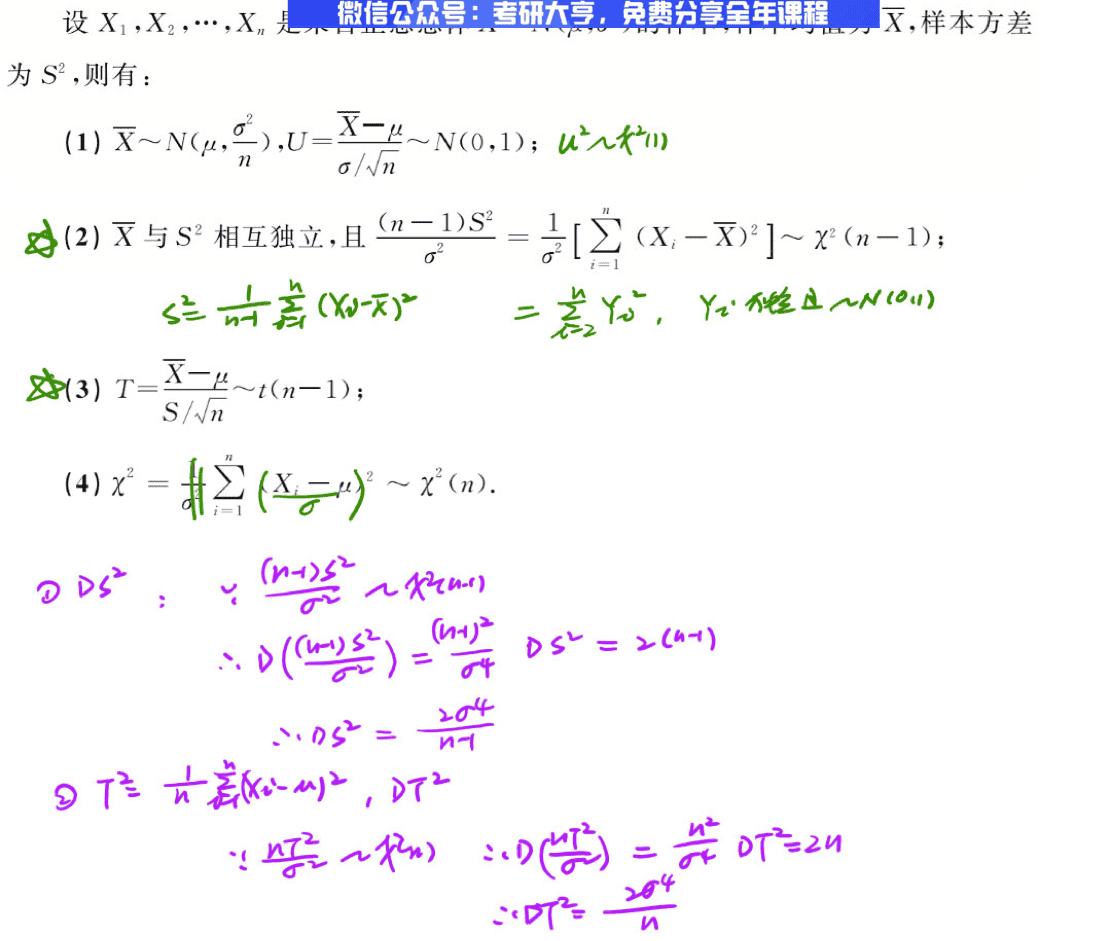 微信公众号：考研大亨，免费分享全年课程
设 X₁,X₂,⋯,Xₙ 是 X̄,样本方差
为 S²,则有：
(1) X̄~N(μ,σ²/n),U=(X̄−μ)/(σ/√n)~N(0,1)； U²~χ²(1)
(2) X̄ 与 S² 相互独立,且 (n−1)S²/σ² = 1/σ² [∑ᵢ₌₁ⁿ (Xᵢ−X̄)²] ~ χ²(n−1)；
S² = 1/(n-1) ∑ᵢ₌₁ⁿ (Xᵢ-X̄)² = ∑ᵢ₌₂ⁿ Yᵢ², Yᵢ ~N(0,1)
(3) T=(X̄−μ)/(S/√n)~t(n−1)；
(4) χ² = ∑ᵢ₌₁ⁿ ((Xᵢ−μ)/σ)² ~ χ²(n).
① DS² : ∵ (n-1)S²/σ² ~ χ²(n-1)
∴ D((n-1)S²/σ²) = (n-1)²/σ⁴ DS² = 2(n-1)
∴ DS² = 2σ⁴/(n-1)
② T² = 1/n ∑ᵢ₌₁ⁿ(Xᵢ-μ)², DT²
∵ nT²/σ² ~ χ²(n) ∴ D(nT²/σ²) = n²/σ⁴ DT² = 2n
∴ DT² = 2σ⁴/n